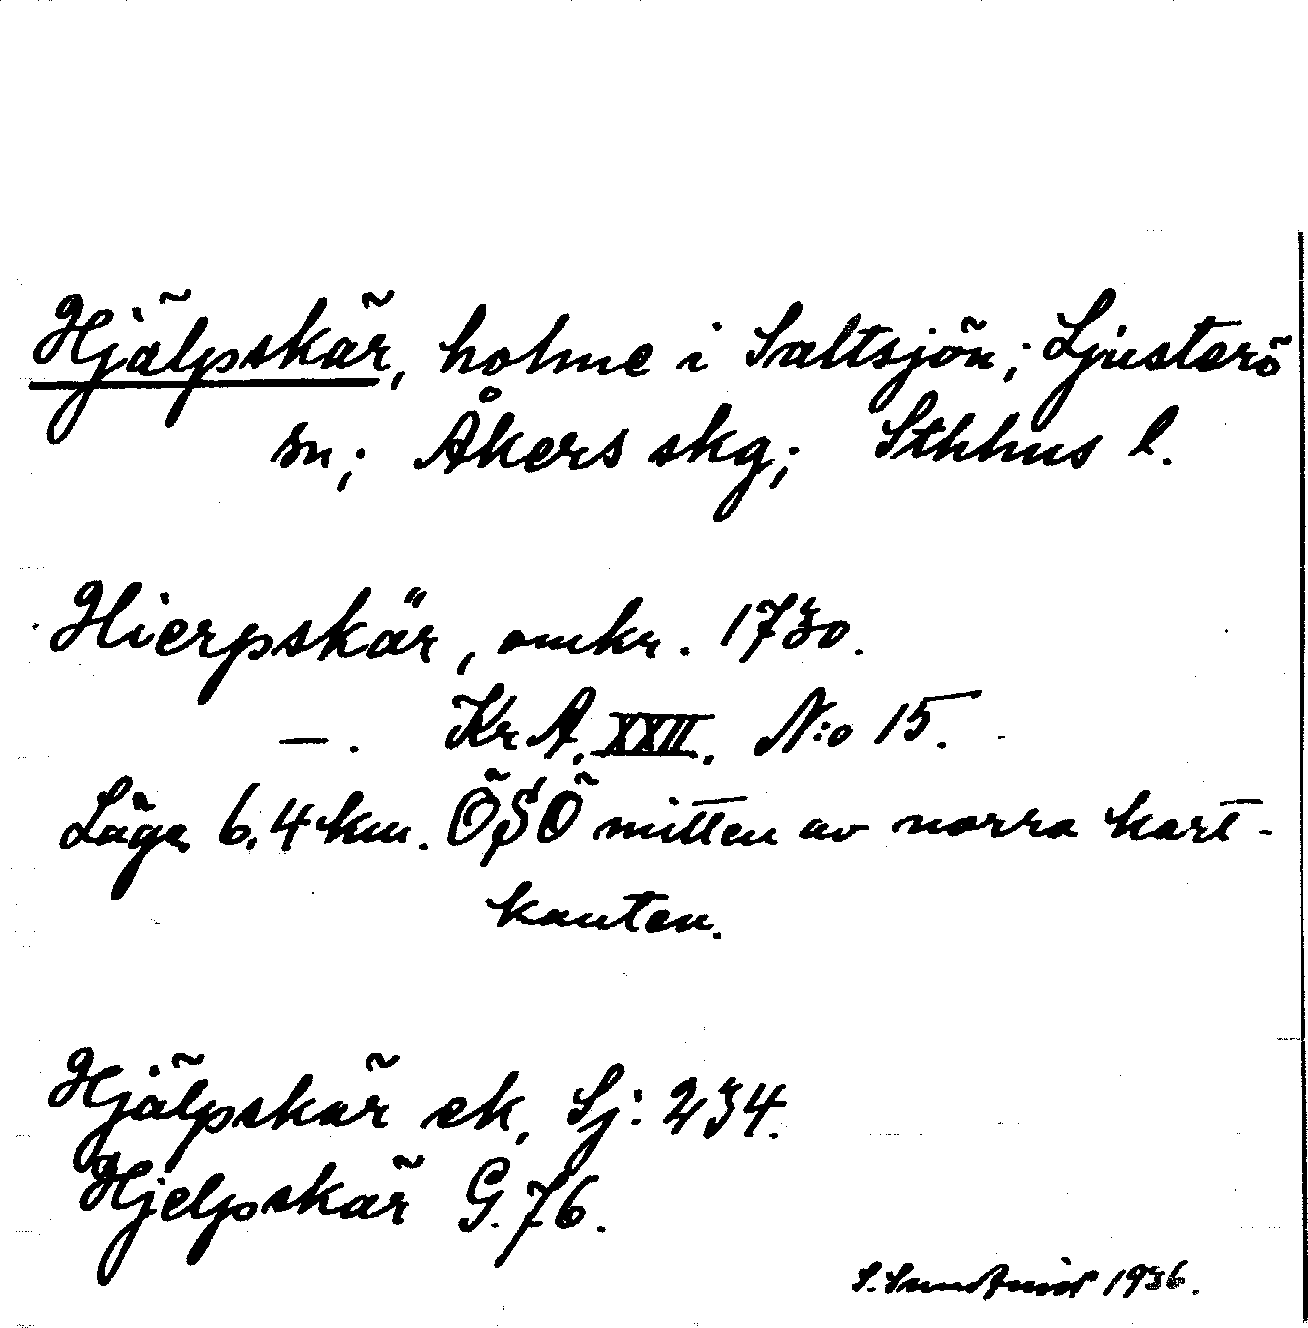 Hjälpskär, holme i Saltsjön; Ljusterö
sn; Åkers skg; Sthlms l.
Hierpskär, omkr. 1730.
—. KrA. XXII. N:o 15.
Läge 6.4 km. ÖSÖ mitten av norra kart-
kanten.
Hjälpskär ek. Sj: 234.
Hjelpskär G. 76.
S. 1936.